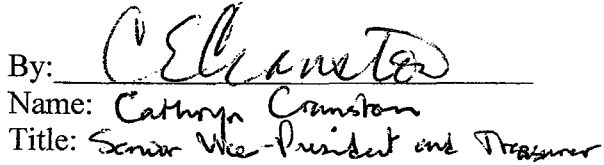 By: CECranston
Name: Cathryn Cranston
Title: Senior Vice-President and Treasurer